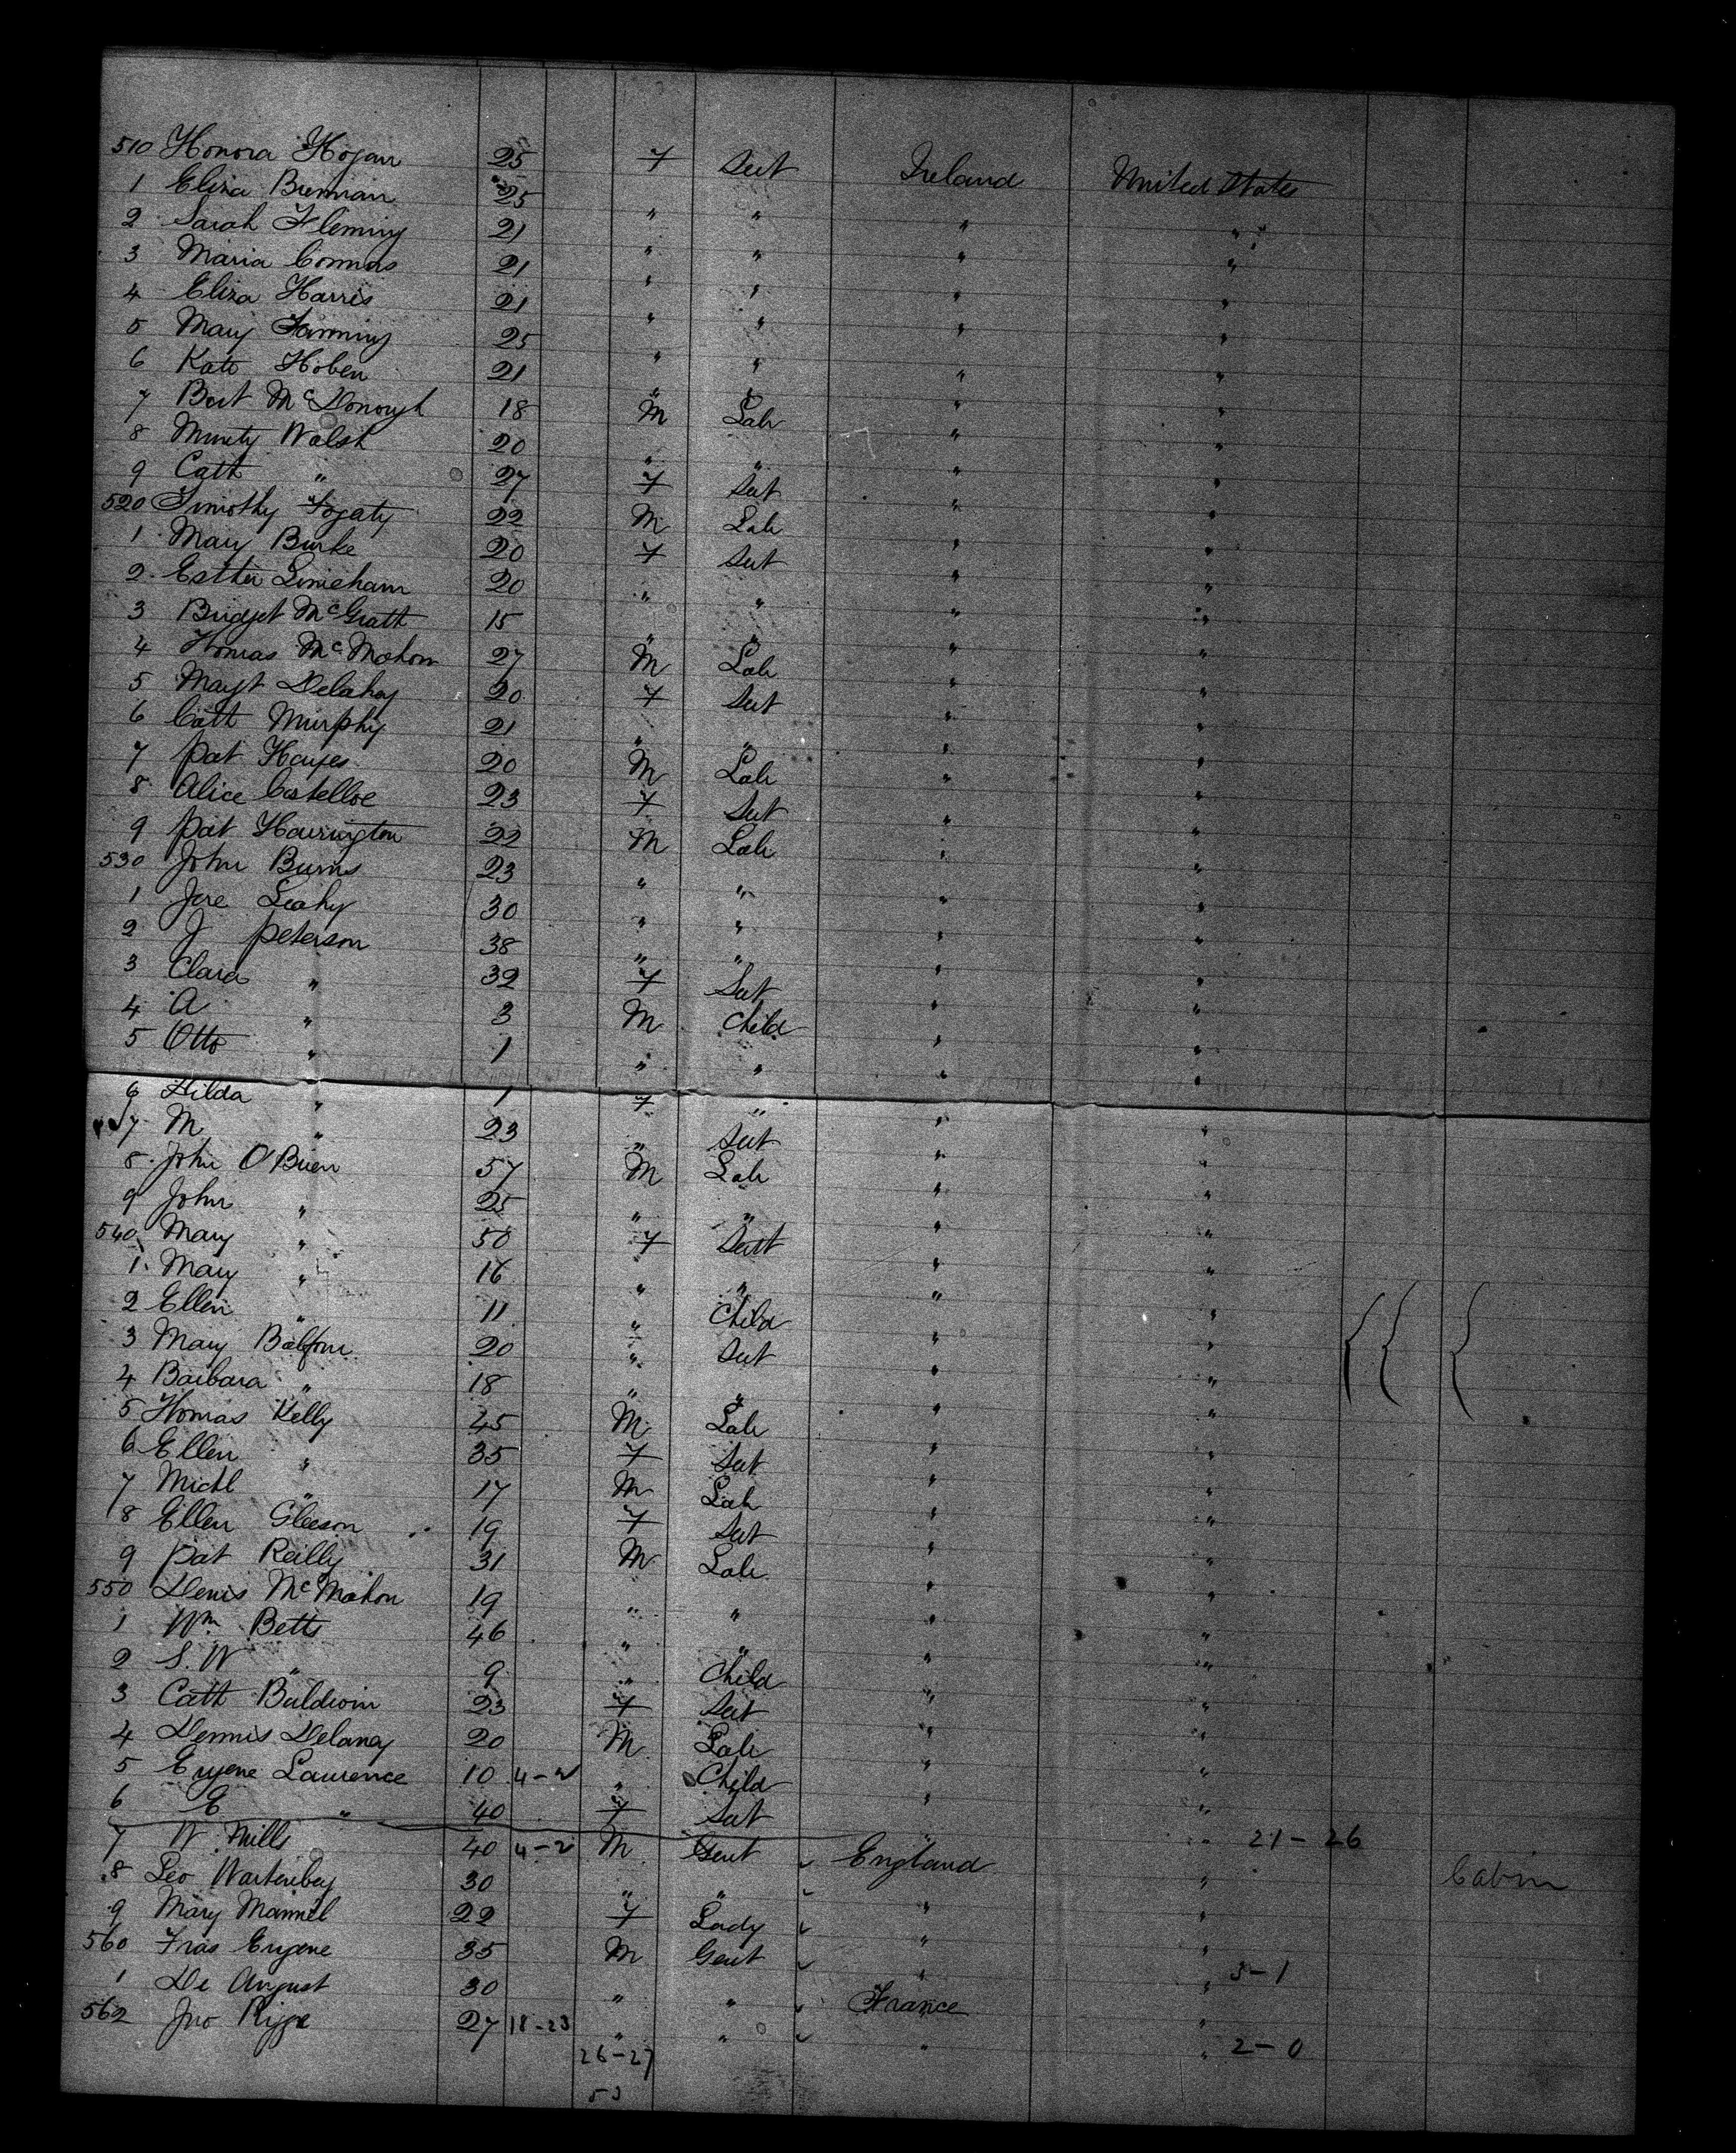 510 Honora Hogan 25 F Sert Ireland United States
1 Eliza Brennan 25 " " " "
2 Sarah Fleming 21 " " " "
3 Maria Connors 21 " " " "
4 Eliza Harris 21 " " " "
5 Mary Fanning 25 " " " "
6 Kate Hoben 21 " " " "
7 Bart McDonough 18 M Lab " "
8 Walsh 20 " " " "
9 Cath " 27 F Sert " "
520 Timothy Fogaty 22 M Lab " "
1 Mary Burke 20 F Sert " "
2 Esther Lineham 20 " " " "
3 Bridget McGrath 15 " " " "
4 Thomas McMahon 27 M Lab " "
5 Magt Delahay 20 F Sert " "
6 Cath Murphy 21 " " " "
7 Pat Hayes 20 M Lab " "
8 Alice Costelloe 23 F Sert " "
9 Pat Harrington 22 M Lab " "
530 John Burns 23 " " " "
1 Jere Leahy 30 " " " "
2 J Peterson 38 " " " "
3 Clara " 32 F Sert " "
4 A " 3 M Child " "
5 Otto " 1 " " " "
6 Hilda " 1 F " " "
7 M " 23 " Sert " "
8 John O'Brien 57 M Lab " "
9 John " 25 " " " "
540 Mary " 50 F Sert " "
1 Mary " 16 " " " "
2 Ellen " 11 " Child " "
3 Mary Balfour 20 " Sert " "
4 Barbara " 18 " " " "
5 Thomas Kelly 45 M Lab " "
6 Ellen " 35 F Sert " "
7 Michl " 17 M Lab " "
8 Ellen Gleeson 19 F Sert " "
9 Pat Reilly 31 M Lab " "
550 Denis McMahon 19 " " " "
1 Wm Betts 46 " " " "
2 S. W " 9 " Child " "
3 Cath Baldwin 23 F Sert " "
4 Dennis Delany 20 M Lab " "
5 Eugene Laurence 10 4-2 " Child " "
6 E " 40 F Sert " "
7 W. Mills 40 4-2 M Gent England " 21-26
8 Leo 30 " " " " Cabin
9 Mary 22 F Lady " "
560 Fras Eugene 35 M Gent " " 3-1
1 De August 30 " " France "
562 Jno 27 18-23 " " " " 2-0
26-27
53